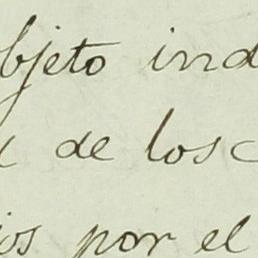 objeto ind
de los
por el